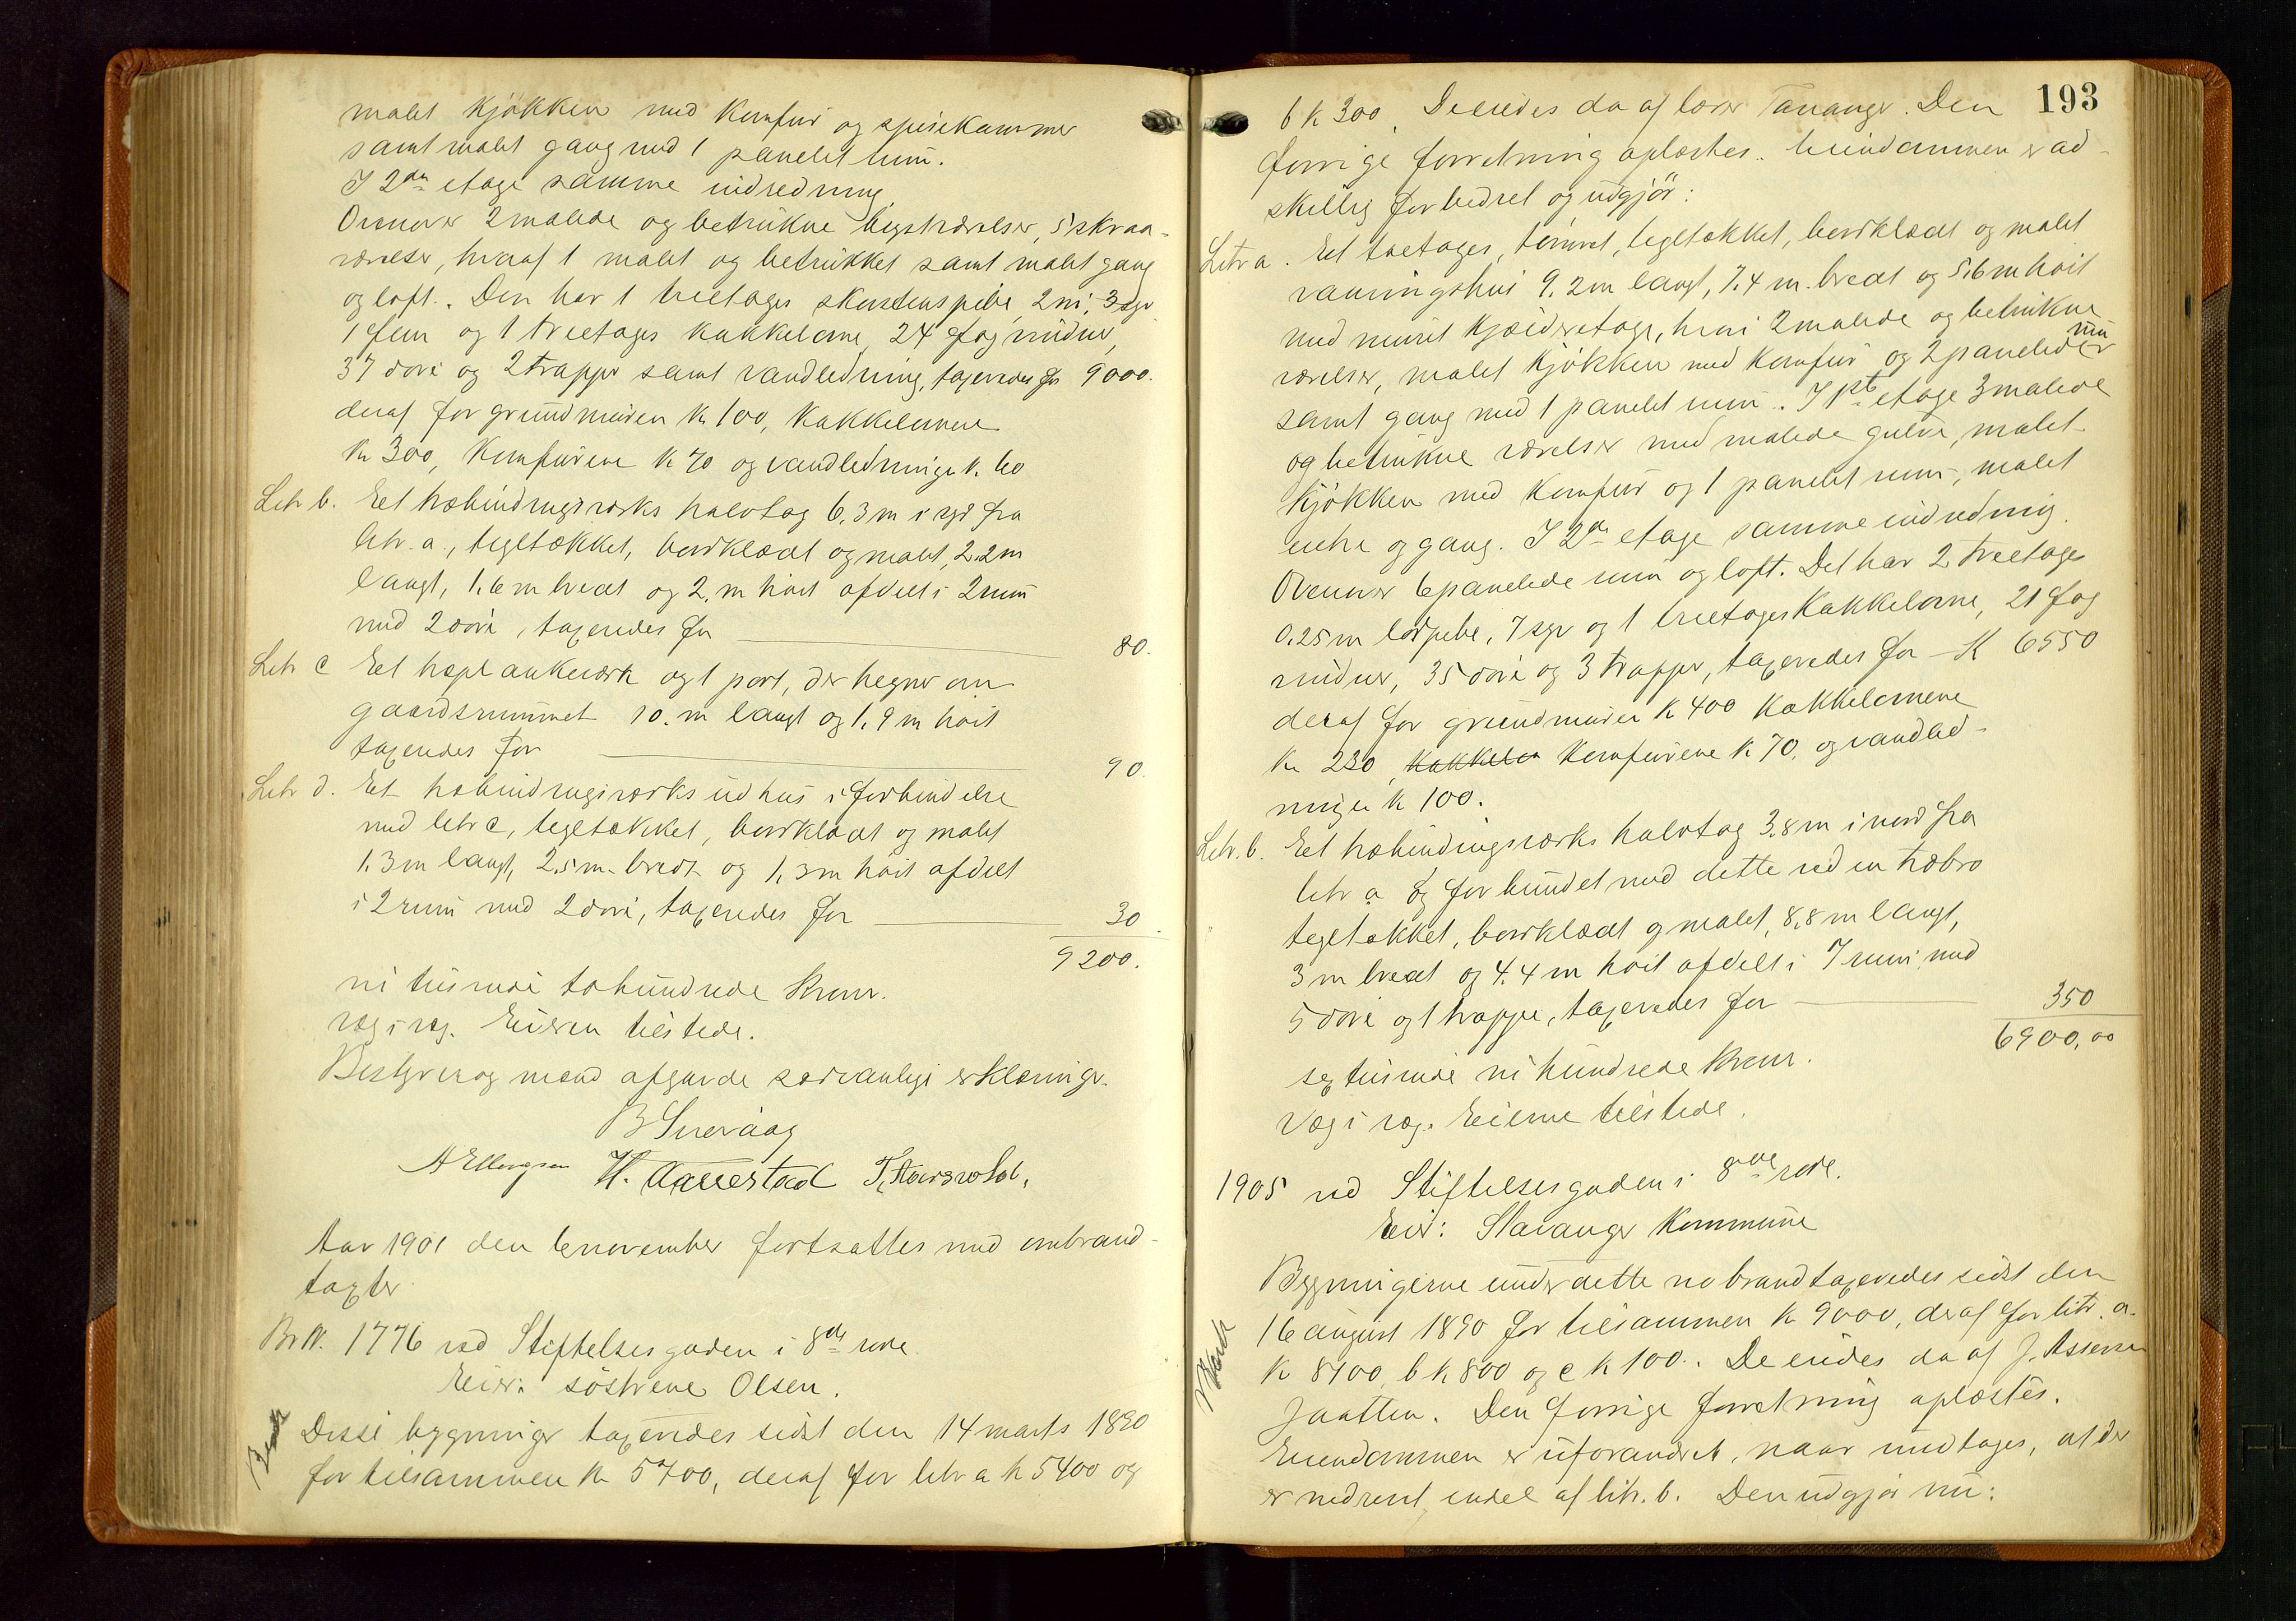 malet kjøkken med komfur og spisekammer
samt malet gang med 1 panelet rum.
I 2den etage samme indredning
Ovenover 2 malede og betrukne kvistværelser, 5 skraa-
værelser, hvoraf 1 malet og betrukket samt malet gang
og loft. Den har 1 treetages skorstenspibe, 2 ni, 3 syv
1 fem og 1 treetages kakkelovne, 24 fag vinduer,
37 døre og 2 trapper samt vandledning, taxeredes for 9000.
deraf for grundmuren K. 100, kakkelovnene
Kr 300, komfurene K 70 og vandledningen K. 60
Litr b. Eet træbindingsværks halvtag 6,3 m i syd fra
litr. a., tegltækket, bordklædt og malet, 2.2 m
langt, 1,6 m bredt og 2. m høit afdelt i 2 rum
med 2 døre, taxeredes for 80.
Litr c Eet træplankeværk og 1 port, der hegner om
gaardsrummet 10. m langt og 1,9 m høit
taxeredes for 90.
Litr d. Et træbindingsværks udhus i forbindelse
med litr c, tegltækket, bordklædt og malet
1,3 m langt, 2,5 m. bredt og 1,3 m høit afdelt
i 2 rum med 2 døre, taxeredes for 30.
9200.
ni tusinde tohundrede Kroner.
væg i væg. Eieren tilstede.
Bestyrer og mænd afgavde sædvanlige erklæringer.
B Snevaag
A Ellingsen H. Aarrestad
Aar 1901 den 6 november fortsattes med ombrand-
taxter.
Br N. 1776 ved Stiftelsesgaden i 8de rode.
Eier: søstrene Olsen.
Disse bygninger taxeredes sidst den 14 marts 1890
for tilsammen Kr 5700, deraf for litr a K 5400 og
193
b K 300. De eiedes da af lærer Tananger. Den
forrige forretning oplæstes. Eiendommen er ad-
skillig forbedret og udgjør:
Litr a. Eet toetages, tømret, tegltækket, bordklædt og malet
vaaningshus 9.2 m langt, 7.4 m. bredt og 5,6 m høit
med muret kjælderetage, hvori 2 malede og betrukne
værelser, malet kjøkken med komfur og 2 panelede rum
samt gang med 1 panelet rum. I 1ste etage 3 malede
og betrukne værelser med malede gulve, malet
kjøkken med komfur og 1 panelet rum, malet
entre og gang. I 2den etage samme indredning.
Ovenover 6 panelede rum og loft. Det har 2 treetages
0.25 m lødpibe, 7 syv og 1 treetages kakkelovne, 21 fag
vinduer, 35 døre og 3 trapper, taxeredes for K 6550
deraf for grundmuren K 400 kakkelovnene
Kr 230, kakkelov komfurene K 70, og vandled-
ningen K 100.
Litr. b. Eet træbindingsværks halvtag 3,8 m i nord fra
litr a og forbundet med dette ved en træbro
tegltækket, bordklædt og malet, 8,8 m langt,
3 m bredt og 4.4 m høit afdelt i 7 rum med
5 døre og 1 trappe, taxeredes for 350
6900,00
sex tusinde ni hundrede Kroner.
Væg i væg. Eierne tilstede.
1905 ved Stiftelsesgaden i 8de rode.
Eier: Stavanger Kommune
Bygningerne under dette no brandtaxeredes sidst den
16 august 1890 for tilsammen K 9000, deraf for litr. a.
K 8100, b K 800 og c K 100. De eiedes da af J. Assersen
Jaatten. Den forrige forretning oplæstes.
Eiendommen er uforandret, naar undtages, at der
er nedrevet endel af litr. b. Den udgjør nu: